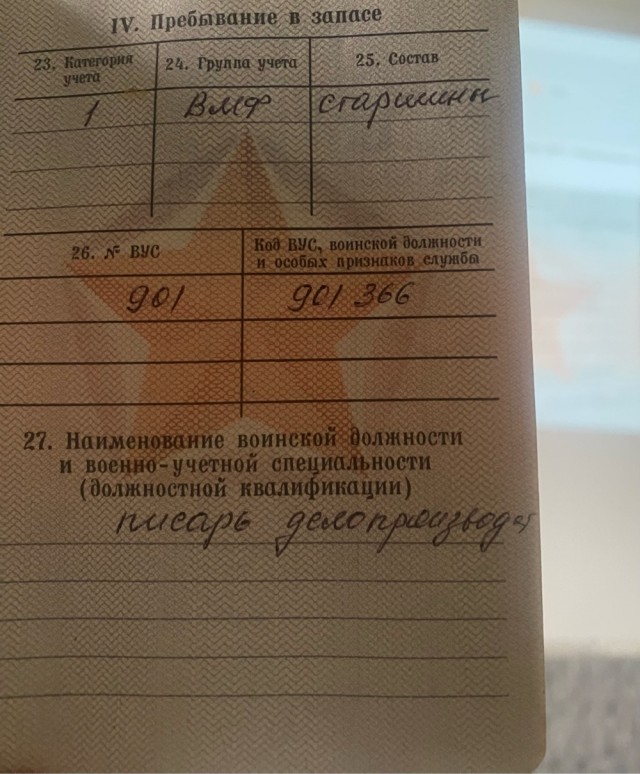 IV. Пребывание в запасе
23. Категория учета
24. Группа учета
25. Состав
1
ВМФ
старшины
26. № ВУС
Код ВУС, воинской должности и особых признаков службы
901
901 366
27. Наименование воинской должности
и военно-учетной специальности
(должностной квалификации)
писарь